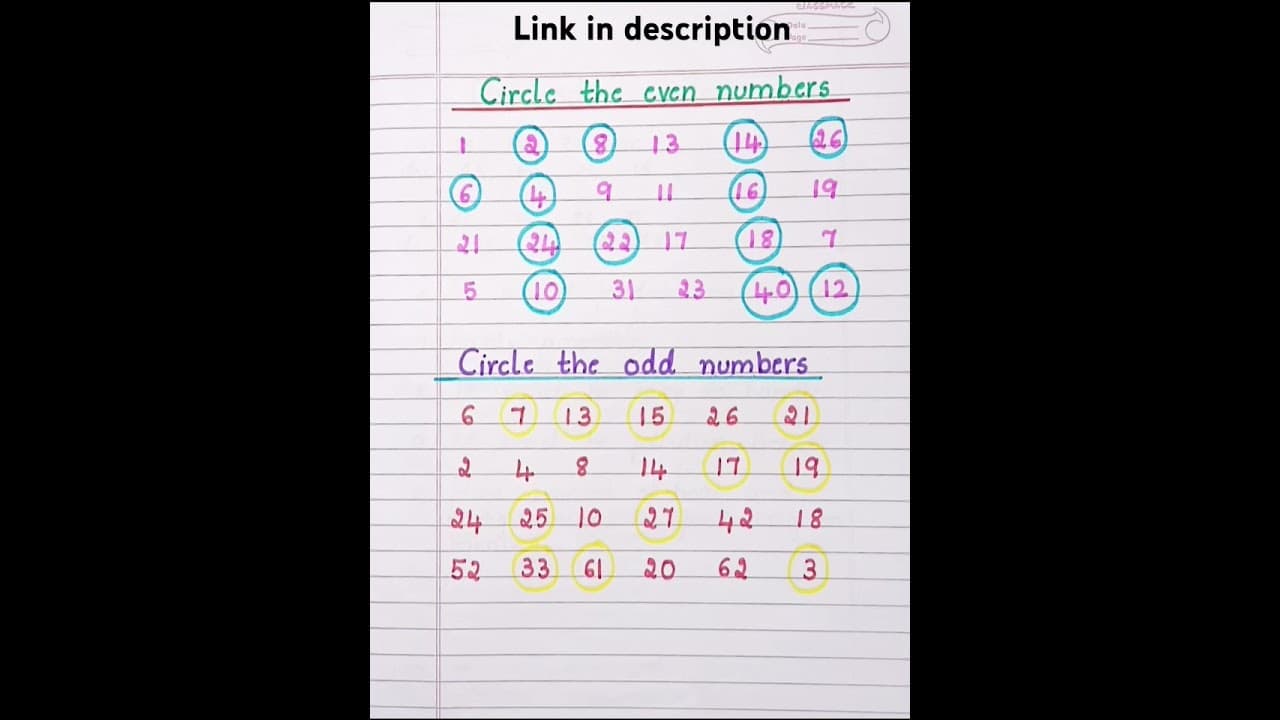 CLASSMATE
Link in description
Date
Page
Circle the even numbers
1 2 8 13 14 26
6 4 9 11 16 19
21 24 22 17 18 7
5 10 31 23 40 12
Circle the odd numbers
6 7 13 15 26 21
2 4 8 14 17 19
24 25 10 27 42 18
52 33 61 20 62 3